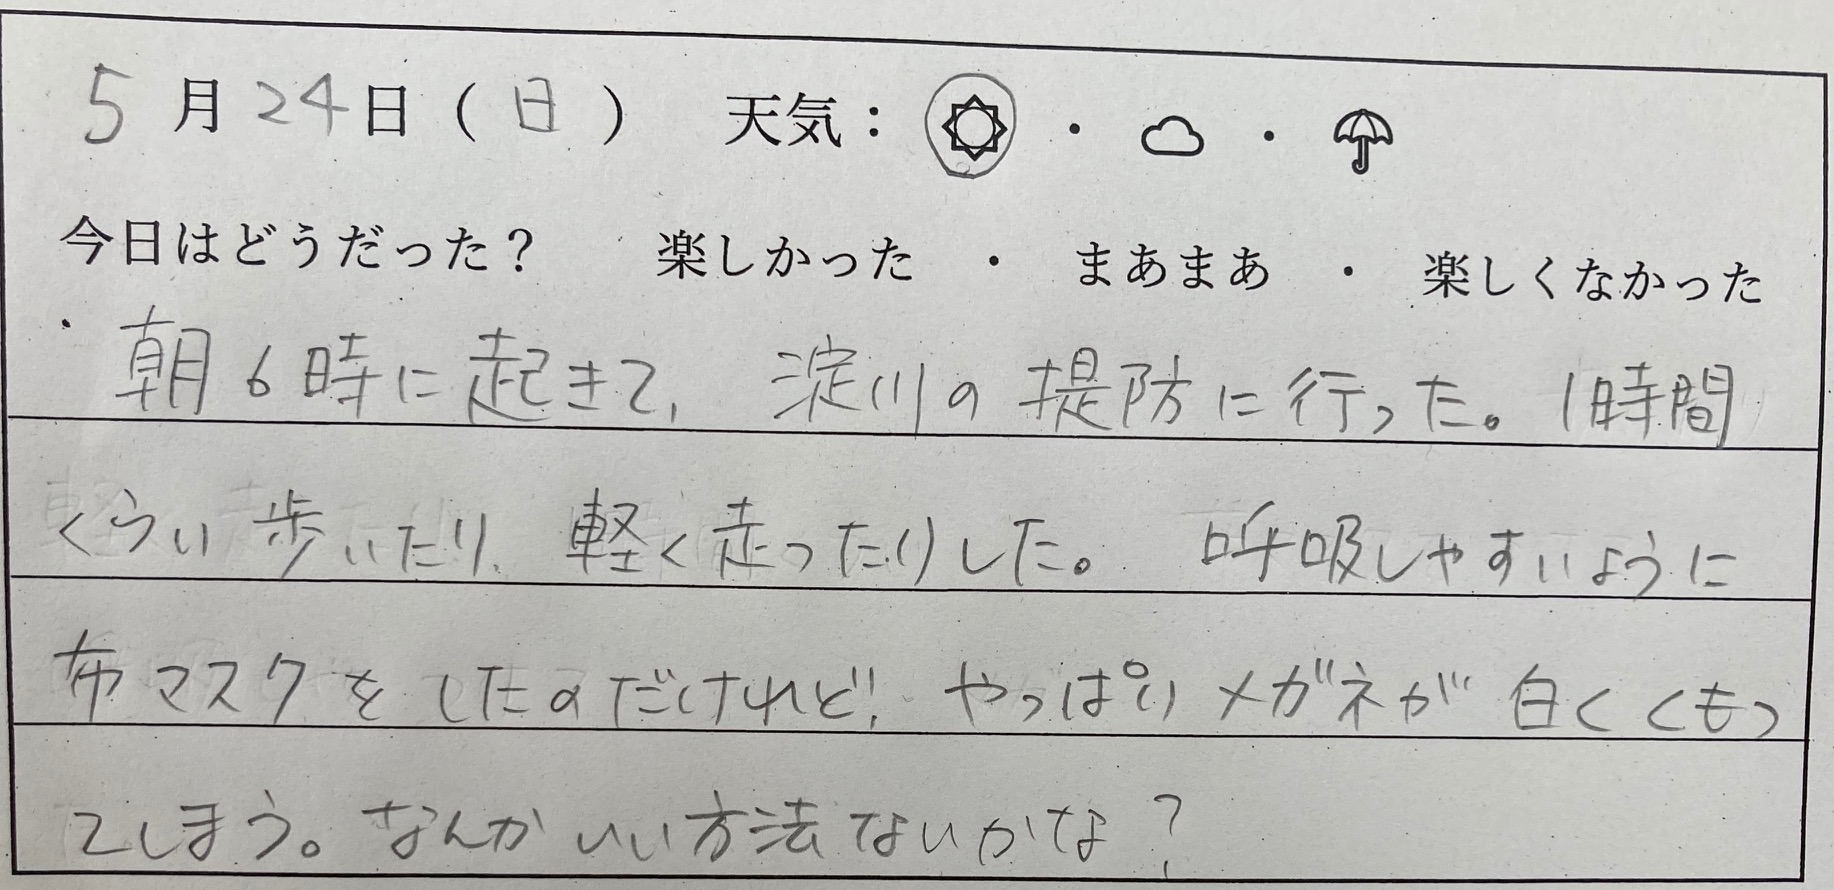 5月24日(日) 天気: ・ ・
今日はどうだった? 楽しかった ・ まあまあ ・ 楽しくなかった
朝6時に起きて、淀川の堤防に行った。1時間
くらい歩いたり、軽く走ったりした。呼吸しやすいように
布マスクをしたのだけれど、やっぱりメガネが白くくもっ
てしまう。なんかいい方法ないかな?